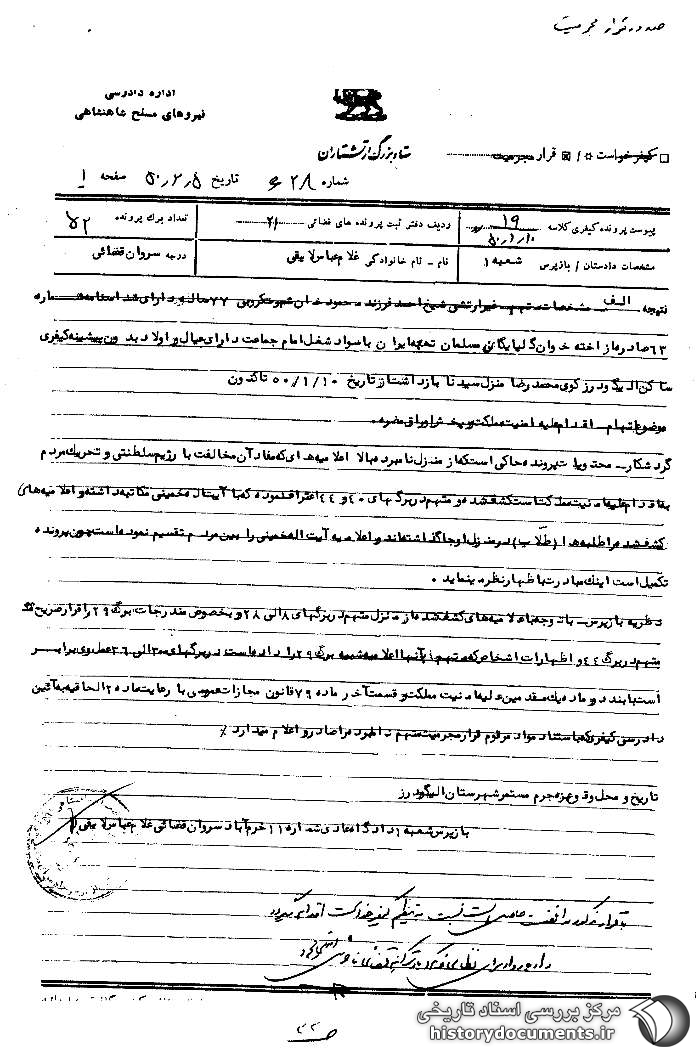 صدور قرار مجرمیت
اداره دادرسی
نیروهای مسلح شاهنشاهی
ستاد بزرگ ارتشتاران
کیفرخواست / قرار مجرمیت
شماره ۶۲۸ تاریخ ۵۰٫۲٫۵ صفحه ۱
پیوست پرونده کیفری کلاسه ۱۹ ردیف دفتر ثبت پرونده های قضائی ۲۱ تعداد برگ پرونده ۵۲
۵۰٫۱٫۱۰
مشخصات دادستان / بازپرس شعبه ۱ نام - نام خانوادگی غلامعباس لایقی درجه سروان قضائی
الف - مشخصات متهم - غیرارتشی شیخ احمد فرزند محمود خان شهرت کروبی ۷۷ ساله دارای شناسنامه شماره
۶۳ صادره از اخته خوان گلپایگان مسلمان تبعه ایران باسواد شغل امام جماعت دارای عیال و اولاد بدون پیشینه کیفری
ساکن الیگودرز کوی محمدرضا منزل سید نا بازداشت از تاریخ ۵۰/۱/۱۰ تاکنون
موضوع اتهام - اقدام علیه امنیت مملکت و پخش اوراق مضره ۰
گردشکار - محتویات پرونده حاکی است که از منزل نامبرده بالا اعلامیه هائی که مفاد آن مخالفت با رژیم سلطنتی و تحریک مردم
به اقدام علیه امنیت مملکت است کشف شده و متهم در برگهای ۴۰ و ۴۴ اعتراف نموده که با آیت اله خمینی مکاتبه داشته و اعلامیه های
کشف شده را طلبه ها (طلاب) در منزل او جا گذاشته اند و اعلامیه آیت اله خمینی را بین مردم تقسیم نموده است چون پرونده
تکمیل است اینک مبادرت باظهار نظر مینماید ۰
نظریه بازپرس - با توجه باعلامیه های کشف شده از منزل متهم در برگهای ۸ الی ۲۸ و بخصوص مندرجات برگ ۲۹ و اقرار صریح
متهم در برگ ۴۴ و اظهارات اشخاص که متهم بآنها اعلامیه شبیه برگ ۲۹ را داده است در برگهای ۳۰ الی ۳۶ عمل وی برابر
است با بند دو ماده یک مقدمین علیه امنیت مملکت و قسمت آخر ماده ۷۹ قانون مجازات عمومی با رعایت ماده ۲ الحاقیه به آئین
دادرسی کیفری که باستناد مواد مرقوم قرار مجرمیت متهم نامبرده را صادر و اعلام میدارد ٪
تاریخ و محل وقوع بزه جرم مستمر شهرستان الیگودرز
بازپرس شعبه ۱ دادگاه عادی شماره ۱۱ خرم آباد سروان قضائی غلامعباس لایقی
با قرار مذکور موافقت حاصل است نسبت به تنظیم کیفرخواست اقدام گردد
۳۳
مرکز بررسی اسناد تاریخی
historydocuments.ir